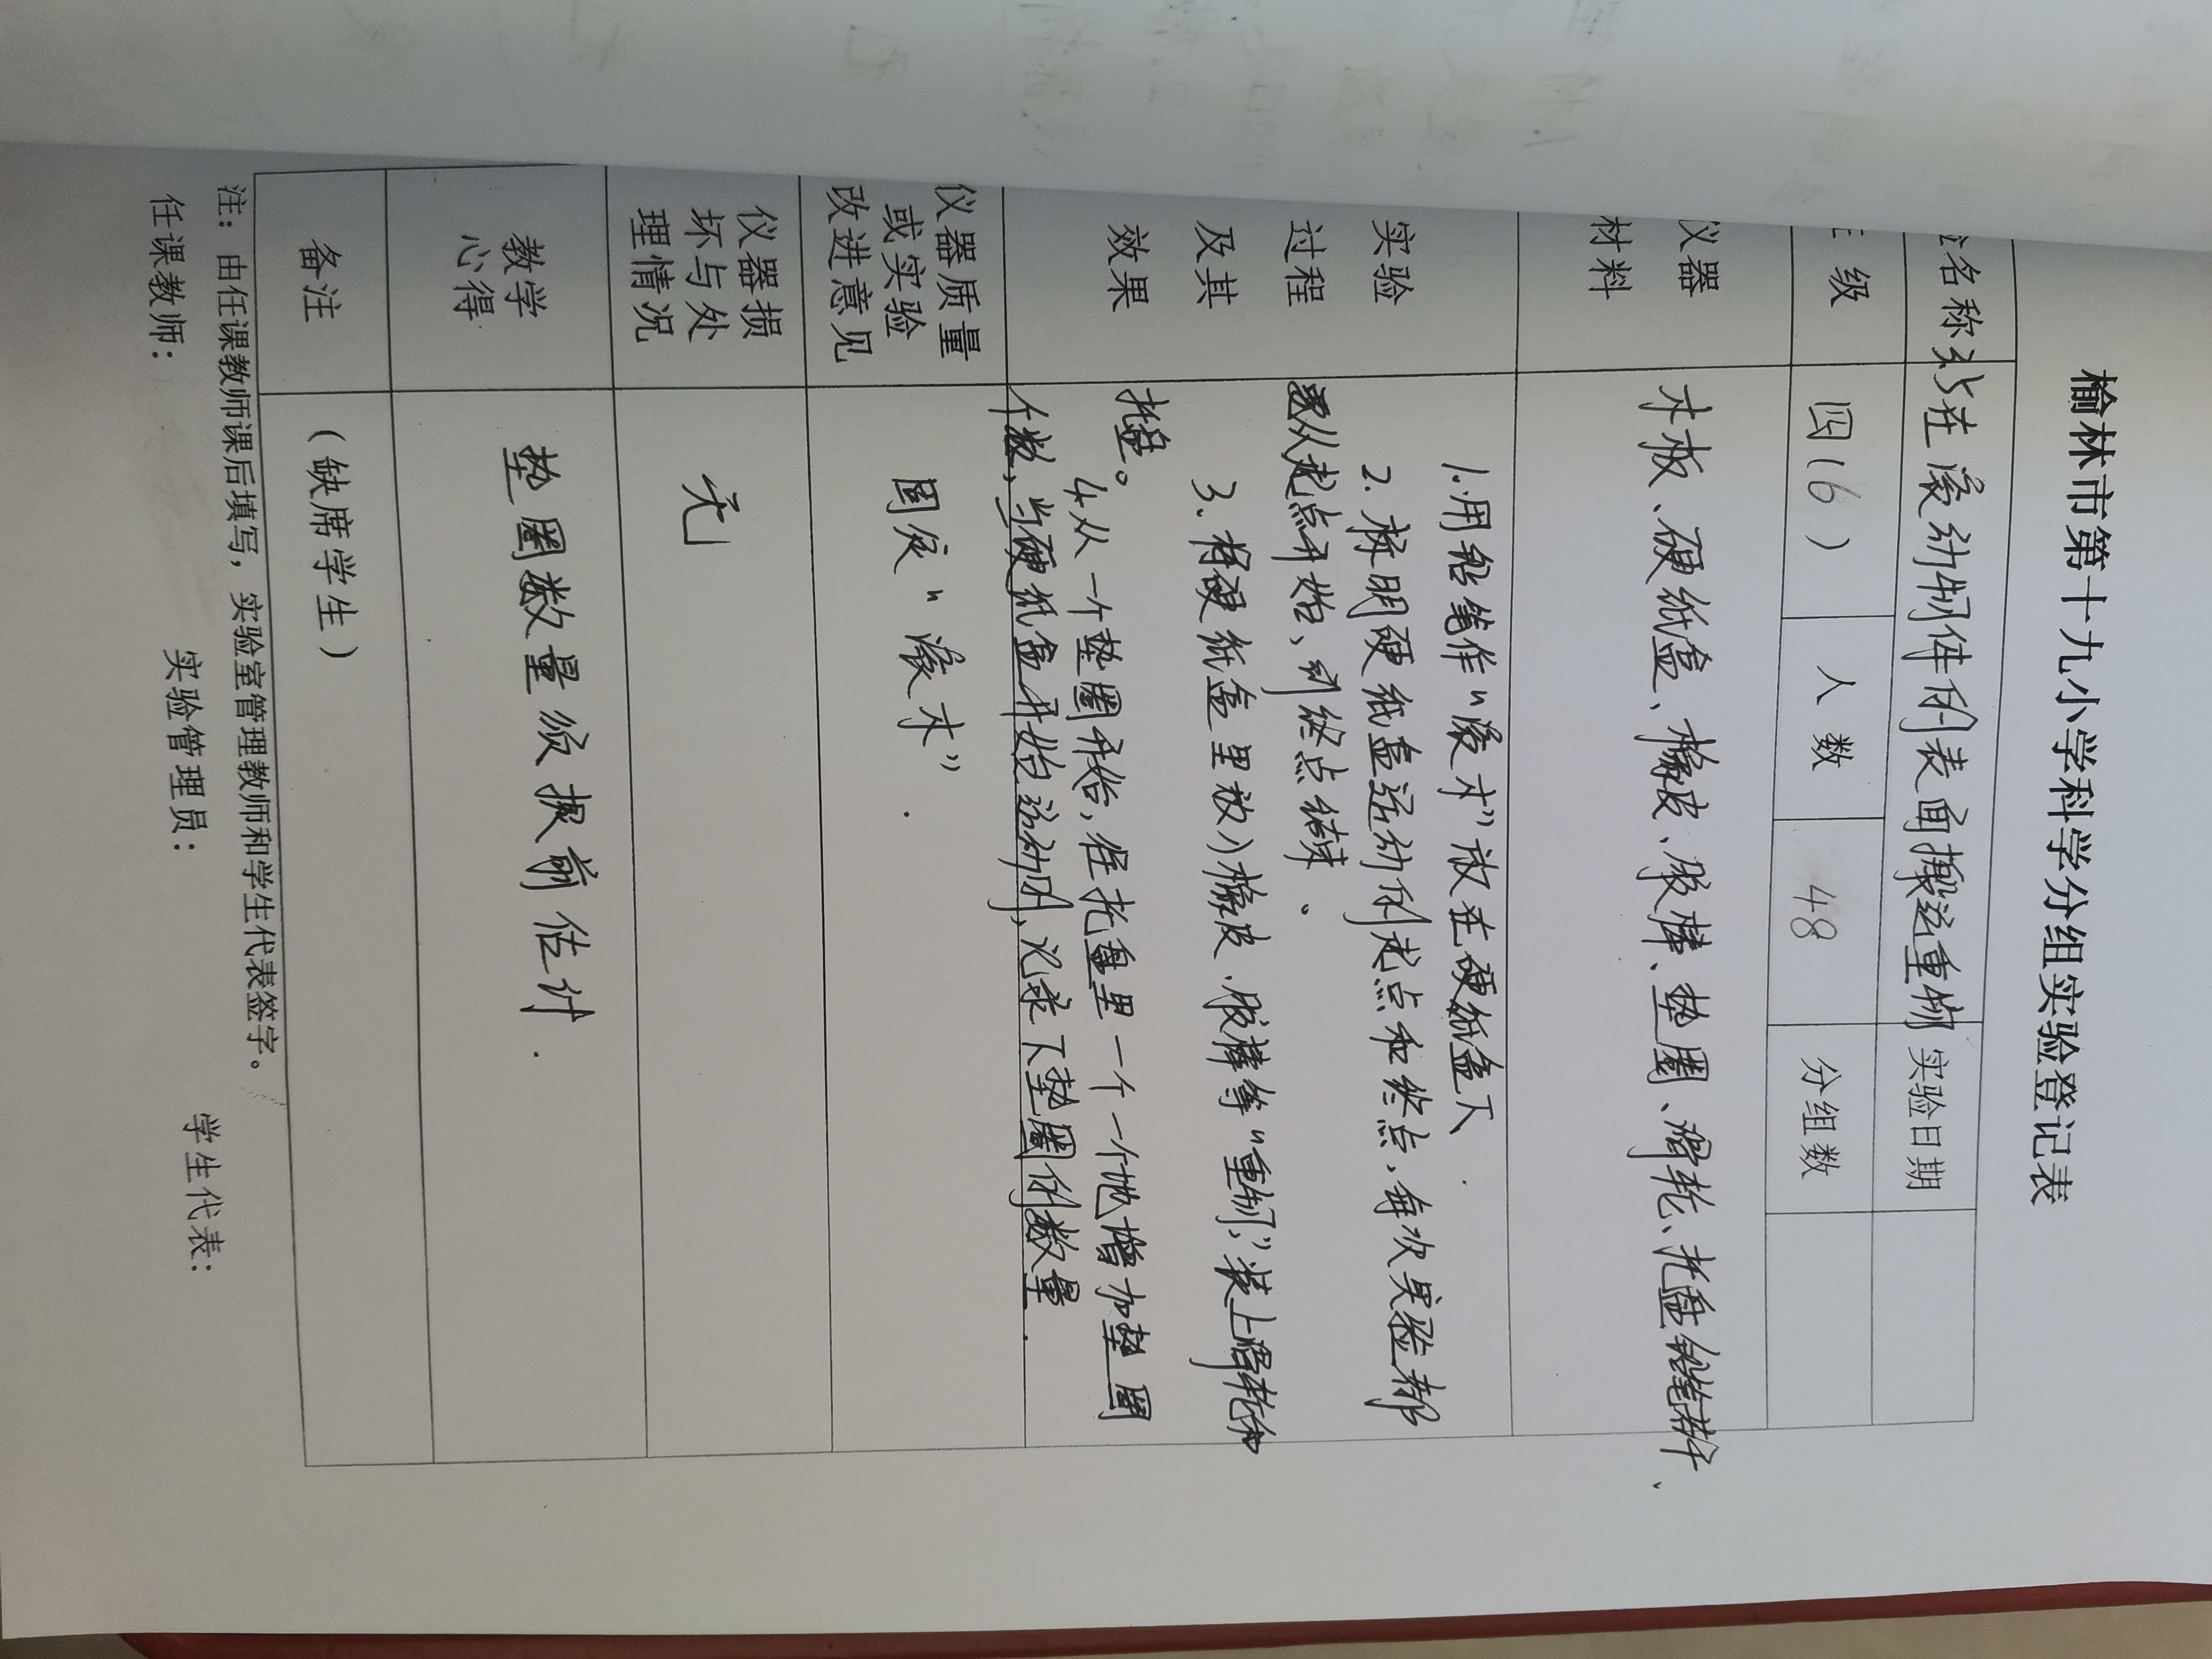 榆林市第十九小学科学分组实验登记表
名称 在滚动物体的表面搬运重物 实验日期
级 四(16) 人数 48 分组数
仪器材料 木板、硬纸盒、橡皮、胶棒、垫圈、滑轮、托盘、铅笔若干、
实验过程及其效果
1.用铅笔作“滚木”放在硬纸盒下.
2.标明硬纸盒运动的起点和终点,每次实验都
要从起点开始、到终点结束。
3.将硬纸盒里放入橡皮、胶棒等“重物”,装上滑轮和
托盘。
4.从一个垫圈开始,往托盘里一个一个地增加垫圈
个数,当硬纸盒开始运动时,记录下垫圈的数量.
仪器质量或实验改进意见 固定“滚木”.
仪器损坏与处理情况 无
教学心得 垫圈数量须提前估计.
备注 (缺席学生)
注:由任课教师课后填写,实验室管理教师和学生代表签字。
任课教师: 实验管理员: 学生代表: